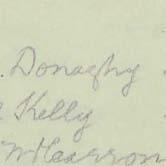 . Donaghy
Kelly
McCarron